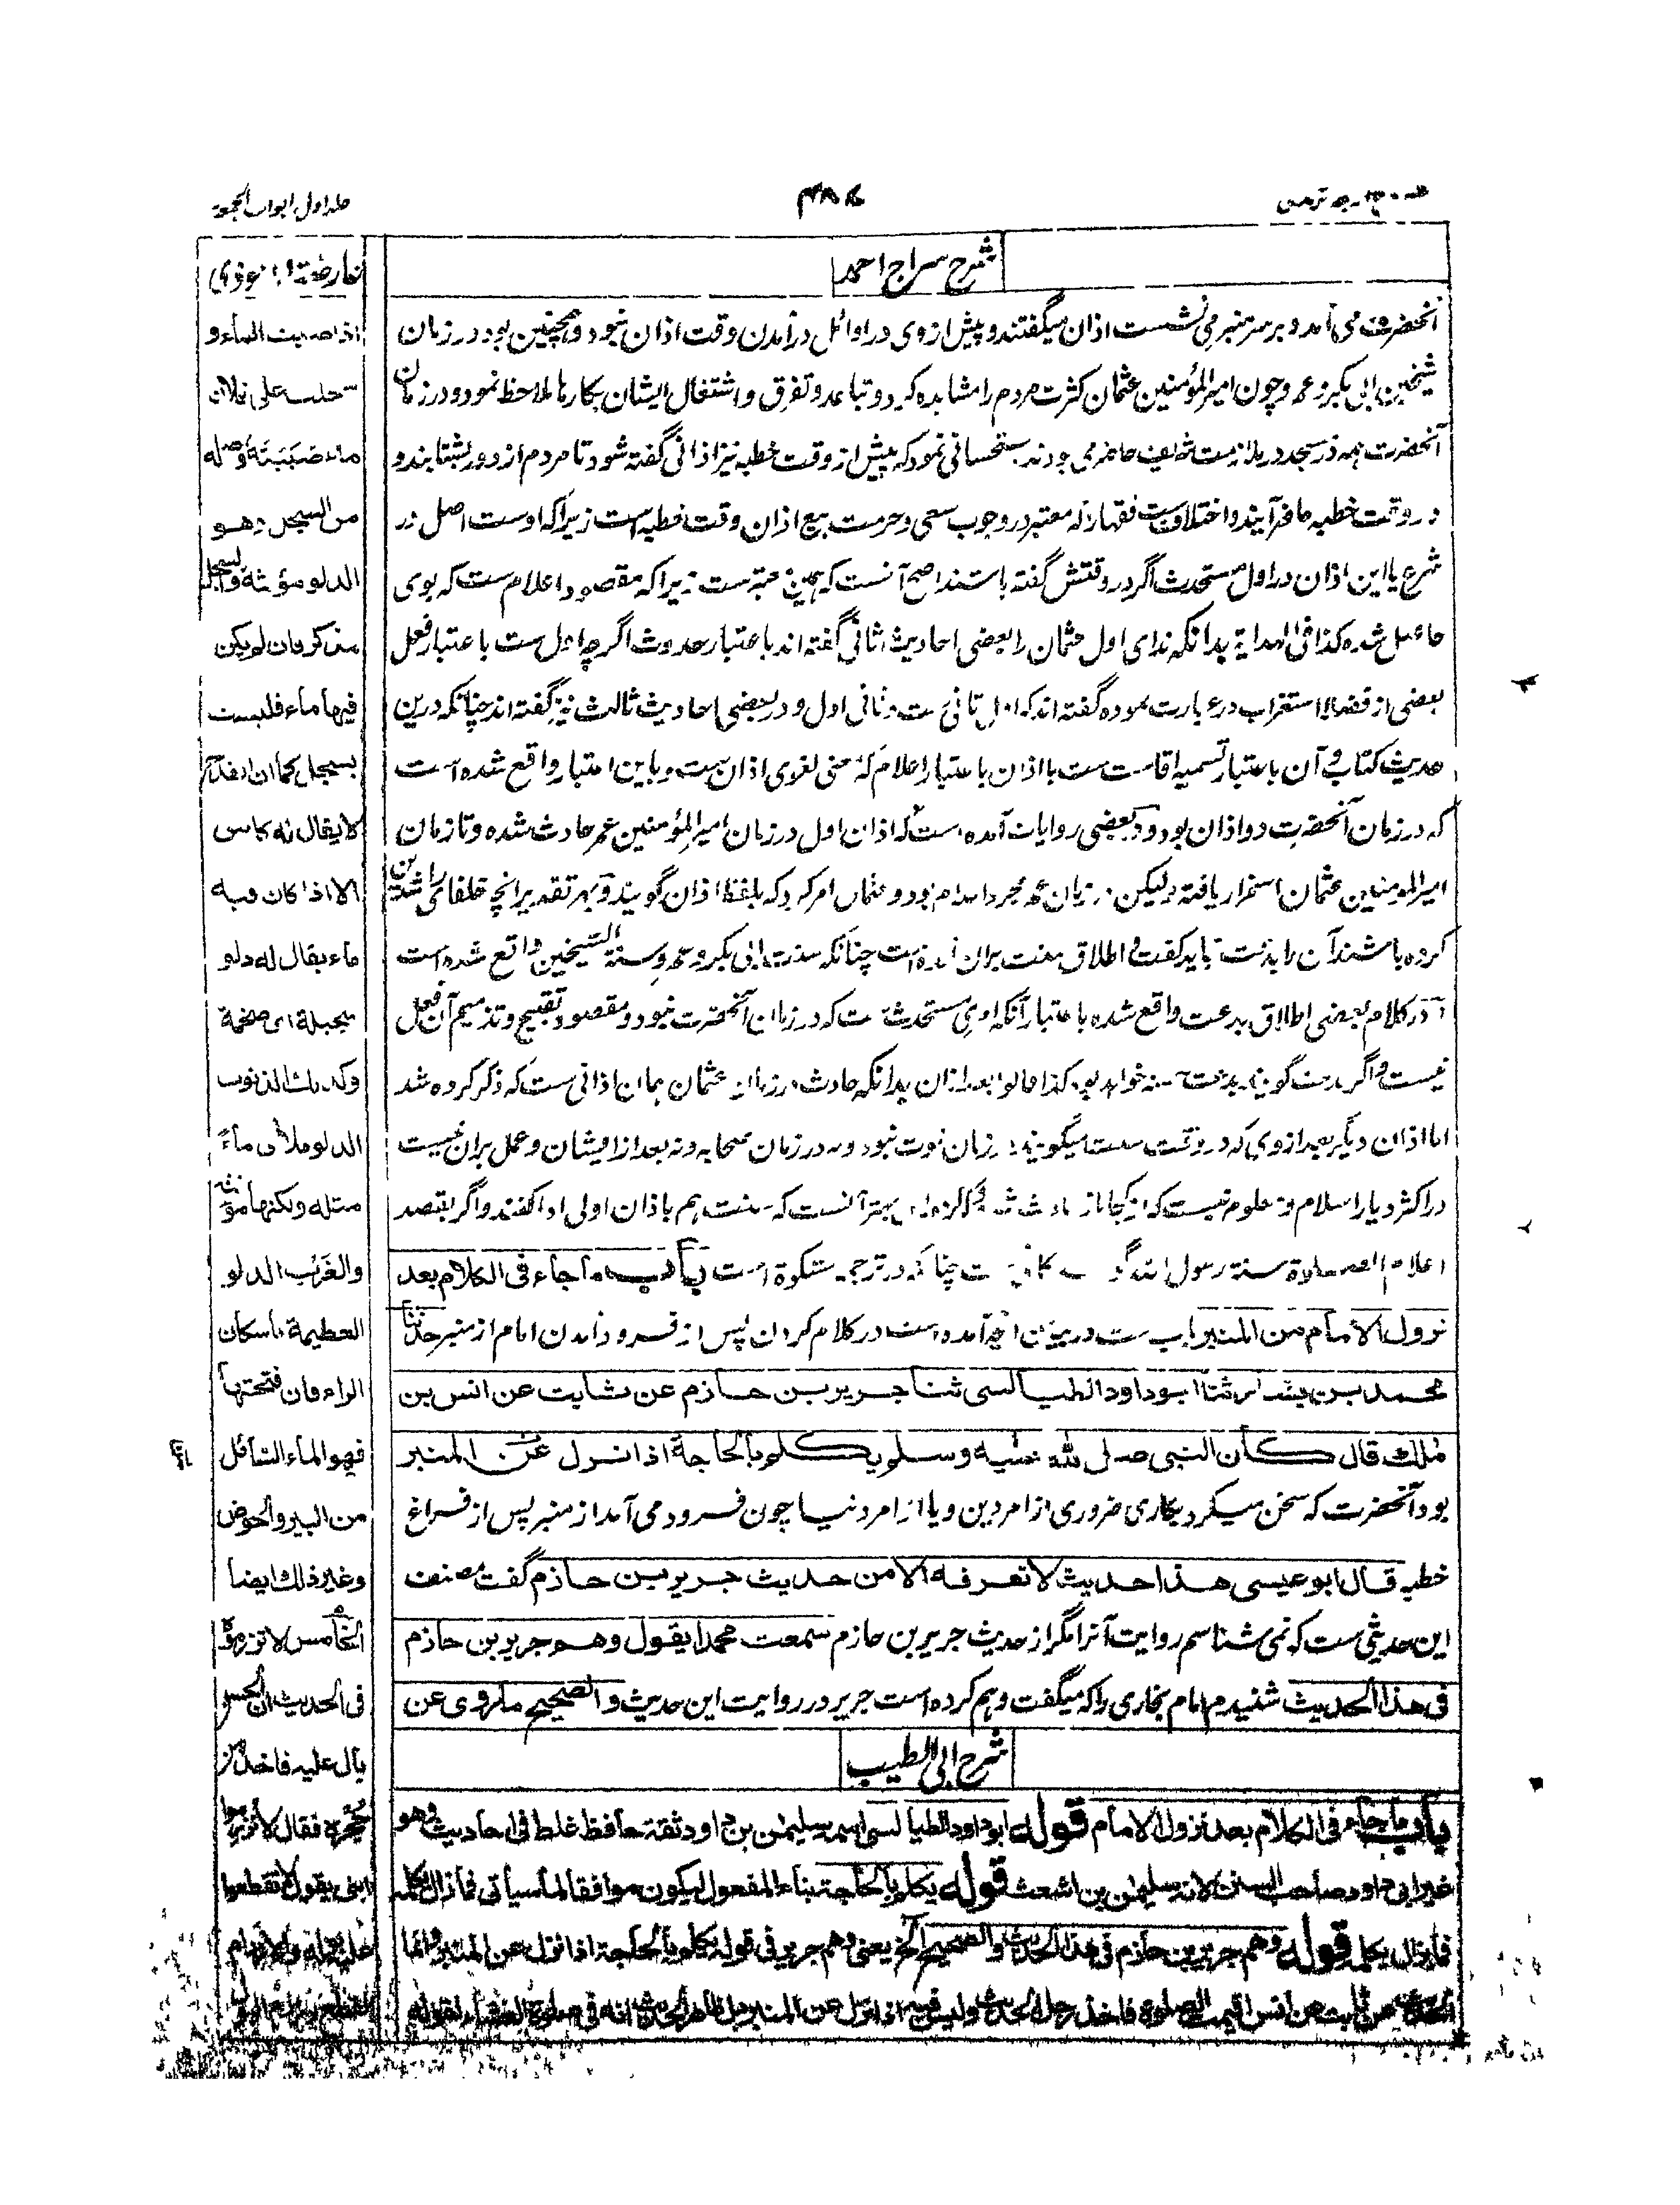 جلد اول ابواب الجمعة
شرح سراج احمد
آنحضرت می آمد و بر سر منبر می نشست اذان میگفتند و پیش ازوی در اوائل درآمدن وقت اذان نبود و همچنین بود در زمان
شیخین ابی بکر و عمر و چون امیرالمؤمنین عثمان کثرت مردم را مشاهده کرد و تباعد و تفرق و اشتغال ایشان بکارها ملاحظه نمود و در زمان
آنحضرت همه در مسجد در ملازمت حاضر می بودند نمود که پیش از وقت خطبه نیز اذانی گفته شود تا مردم از دور بشتابند و
در وقت خطبه حاضر آیند و اختلاف است فقها را که معتبر در وجوب سعی و حرمت بیع اذان وقت خطبه است زیرا که اوست اصل در
شرع یا این اذان در اول مستحدث اگر در وقتش گفته باشند اصح آنست که همین معتبرست زیرا که مقصود اعلام ست که بوی
حاصل شده کذا فی الهدایة بدانکه ندای اول عثمان را بعضی احادیث ثانی گفته اند باعتبار حدوث اگرچه اول ست باعتبار فعل
بعضی از فقها استغراب در عبارت نموده گفته اند که اول ثانی ست و ثانی اول و در بعضی احادیث ثالث نیز گفته اند چنانکه درین
حدیث کتاب و آن باعتبار تسمیه اقامت ست با اذان باعتبار اعلام که معنی لغوی اذان ست و باین اعتبار واقع شده است
که در زمان آنحضرت دو اذان بود و در بعضی روایات آمده است که اذان اول در زمان امیرالمؤمنین عمر حادث شده و تا زمان
امیرالمومنین عثمان استمرار یافته ولیکن در زمان عمر مجرد اعلام بود و عثمان امر کرد که بلفظ اذان گویند و بهر تقدیر انچه خلفای راشدین
کرده باشند آن را بدعت نباید گفت و اطلاق سنت بران آمده است چنانکه سنت ابی بکر و عمر و سنة الشیخین واقع شده است
در کلام بعضی اطلاق بدعت واقع شده باعتبار آنکه امری مستحدث ست که در زمان آنحضرت نبود و مقصود تقبیح و تذمیم آن فعل
نیست و اگر بدعت گویند بدعت حسنه خواهد بود کذا قالوا بعد ازان بدانکه حادث در زمان عثمان همان اذانی ست که ذکر کرده شد
اما اذان دیگر بعد ازوی که در وقت سنت میگویند در زمان نبوت نبود و نه در زمان صحابه و نه بعد از ایشان و عمل بران نیست
در اکثر دیار اسلام و معلوم نیست که از کجا بهتر آنست که سنت هم باذان اولی ادا کنند و اگر بقصد
اعلام الصلاة سنة رسول الله چنانکه در ترجمه مشکوة است باب ما جاء فی الکلام بعد
نزول الامام من المنبر باب ست در بیان آنچه آمده است در کلام کردن پس از فرود آمدن امام از منبر حدثنا
محمد بن بشار ثنا ابو داود الطیالسی ثنا جریر بن حازم عن ثابت عن انس بن
ملك قال کان النبی صلی الله علیه وسلم یکلم بالحاجة اذا نزل عن المنبر
بود آنحضرت که سخن میکرد بکاری ضروری از امر دین و یا از امر دنیا چون فرود می آمد از منبر پس از فراغ
خطبه قال ابو عیسی هذا حدیث لا نعرفه الا من حدیث جریر بن حازم گفت مصنف
این حدیثی ست که نمی شناسم روایت آنرا مگر از حدیث جریر بن حازم سمعت محمدا یقول وهم جریر بن حازم
فی هذا الحدیث شنیدم امام بخاری را که میگفت وهم کرده است جریر در روایت این حدیث والصحیح ما روی عن
شرح ابی الطیب
باب ما جاء فی الکلام بعد نزول الامام قوله ابو داود الطیالسی اسمه سلیمن بن داود ثقة حافظ غلط فی احادیث وهو
غیر ابی داود صاحب السنن لانه سلیمن بن اشعث قوله یکلم بالحاجة بناء المفعول لیکون موافقا لما سیأتی فما زال یکلمه
فما زال یکلمه قوله وهم جریر بن حازم فی هذا الحدیث والصحیح الخ یعنی وهم جریر فی قوله یکلم بالحاجة اذا نزل عن المنبر وانما
الحدیث عن ثابت عن انس اقیمت الصلوة فاخذ رجل الحدیث ولیس فیه اذا نزل عن المنبر بل ظاهر الحدیث انه فی صلوة العشاء لقوله
عارضة الاحوذی
من السجل وهو
الدلو مؤنثة والسجل
مذکر فان لم یکن
فیها ماء فلیست
بسجل کما ان القدح
لا یقال له کاس
الا اذا کان فیه
ماء یقال له دلو
سجیلة ای ضخمة
وکذلك الذنوب
الدلو ملأی ماء
مثله ولکنها مؤنثة
والغرب الدلو
العظیمة باسکان
الراء فان فتحتها
فهو الماء السائل
من البیر والحوض
وغیر ذلك ایضا
الخامس لا تزرموه
فی الحدیث ان الحسن
بال علیه فاخذ من
حجره فقال لا تزرموا
ابنی یقول لا تقطعوا